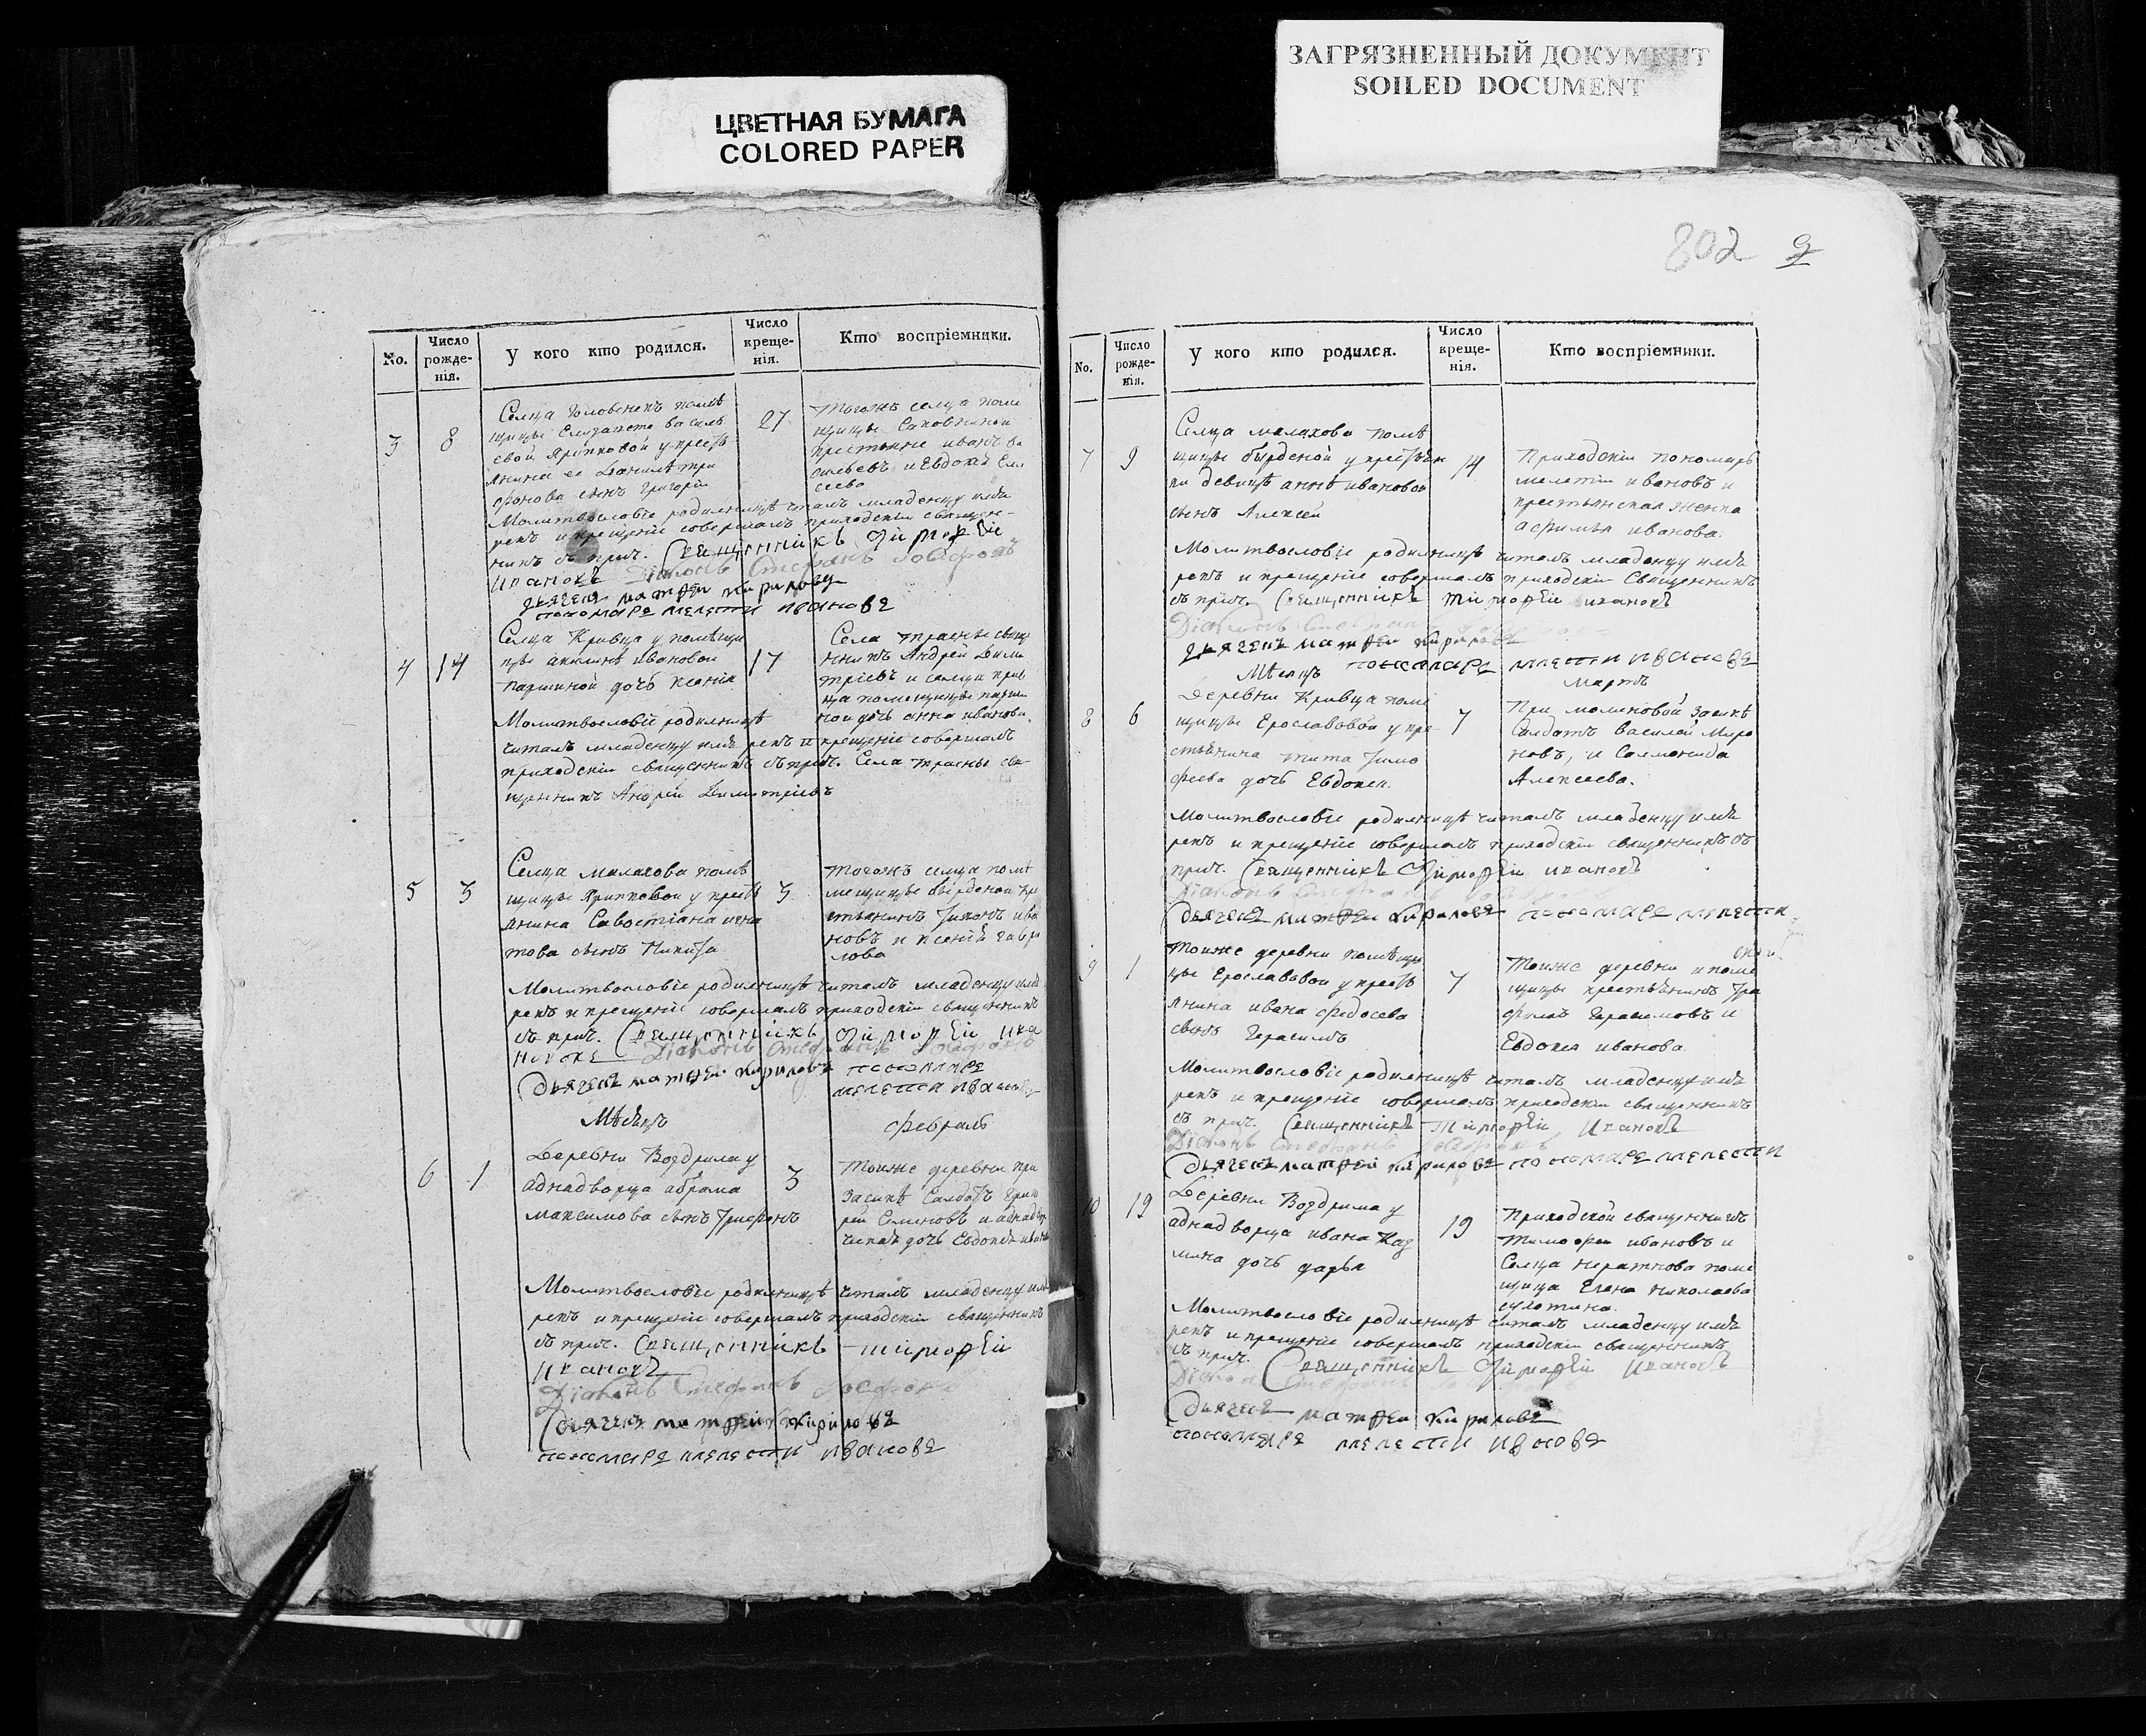 ЦВЕТНАЯ БУМАГА
COLORED PAPER
ЗАГРЯЗНЕННЫЙ ДОКУМЕНТ
SOILED DOCUMENT
802 2
No.
Число рожде-нія.
У кого кто родился.
Число креще-нія.
Кто воспріемники.
3
8
Селца Головенекъ помѣ
щицы Елизаветы Василь
евой у кресть
янина ее Данилы Три
фонова сынъ Григорій
27
Тогожъ селца поме
щицы
крестьяне Иванъ Ва
сильевъ и Евдокія Ели
сеева
Молитвословіе родилницѣ читалъ младенцу имя
рекъ и крещеніе совершалъ приходскій священ-
никъ съ прич. Священникъ Тимофей
Ивановъ Діаконъ Стефанъ
дьячекъ Матфей Кириловъ
пономарь Мелетий Ивановъ
4
14
Селца Кривца у помѣщи
цы Акилины Ивановой
Паршиной дочь Ксенія
17
Села Трасны свящ
енникъ Андрей Дими
тріевъ и селца Крив
ца помещицы Парши
ной дочь Анна Иванова.
Молитвословіе родилницѣ
читалъ младенцу имя рекъ и крещеніе совершалъ
приходскій священникъ съ прич. Села Трасны свя
щенникъ Андрей Димитріевъ
5
3
Селца Малахова помѣ
щицы Яриковой у кресть
янина Савостіана Игна
това сынъ Никита
3
Тогожъ селца помѣ
мещицы кре
стьянинъ Тихонъ Ива
новъ и Ксенія Гаври
лова
Молитвословіе родилницѣ читалъ младенцу имя
рекъ и крещеніе совершалъ приходскій священникъ
съ прич. Священникъ Тимофей Ива
новъ Діаконъ Стефанъ
Дьячекъ Матфей Кириловъ пономарь
Мелетий Ивановъ
Мѣсяцъ Февраль
6
1
Деревни Воздрима у
аднадворца Абрама
Максимова сынъ Трифонъ
3
Тоиже деревни при
засикѣ Салдатъ Григо
рей Семеновъ и аднадвор
ческая дочь Евдокея
Молитвословіе родилницѣ читалъ младенцу имя
рекъ и крещеніе совершалъ приходскій священникъ
съ прич. Священникъ Тимофей
Ивановъ
Діаконъ Стефанъ
Дьячекъ Матфей Кириловъ
пономарь Мелетий Ивановъ
No.
Число рожде-нія.
У кого кто родился.
Число креще-нія.
Кто воспріемники.
7
9
Селца Малахова помѣ
щицы у крестьян
ки девицы Анны Ивановой
сынъ Алексей
14
Приходскій пономарь
Мелетій Ивановъ и
крестьянская женка
Афимья Иванова.
Молитвословіе родилницѣ читалъ младенцу имя
рекъ и крещеніе совершалъ приходскій Священникъ
съ прич. Священникъ Тимофей Ивановъ
Діаконъ Стефанъ
дьячекъ Матфей Кириловъ
Мѣсяцъ пономарь Мелетий Ивановъ
Мартъ
8
6
Деревни Кривца поме
щицы Ерославовой у кре
стьянина Тита Тимо
феева дочь Евдокея.
7
При засикѣ
Салдатъ Василей Миро
новъ, и Саломонида
Алексеева.
Молитвословіе родилницѣ читалъ младенцу имя
рекъ и крещеніе совершалъ приходскій священникъ съ
прич. Священникъ Тимофей Ивановъ
Діаконъ Стефанъ
Дьячекъ Матфей Кириловъ пономарь Мелетий
9
1
Тоиже деревни помѣщи
цы Ерославовой у кресть
янина Ивана Федосева
сынъ Герасимъ
7
Тоиже деревни и поме
щицы крестьянинъ Тра
фимъ Герасимовъ и
Евдокея Иванова.
Молитвословіе родилницѣ читалъ младенцу имя
рекъ и крещеніе совершалъ приходскій священникъ
съ прич. Священникъ Тимофей Ивановъ
Діаконъ Стефанъ
Дьячекъ Матфей Кириловъ пономарь Мелетий
10
19
Деревни Воздрима у
аднадворца Ивана Каз
мина дочь Дарья
19
Приходской священникъ
Тимофеи Ивановъ и
Селца поме
щица Елена Николаева
Сухотина.
Молитвословіе родилницѣ читалъ младенцу имя
рекъ и крещеніе совершалъ приходскій священникъ
съ прич. Священникъ Тимофей Ивановъ
Діаконъ Стефанъ
Дьячекъ Матфей Кириловъ
пономарь Мелетий Ивановъ